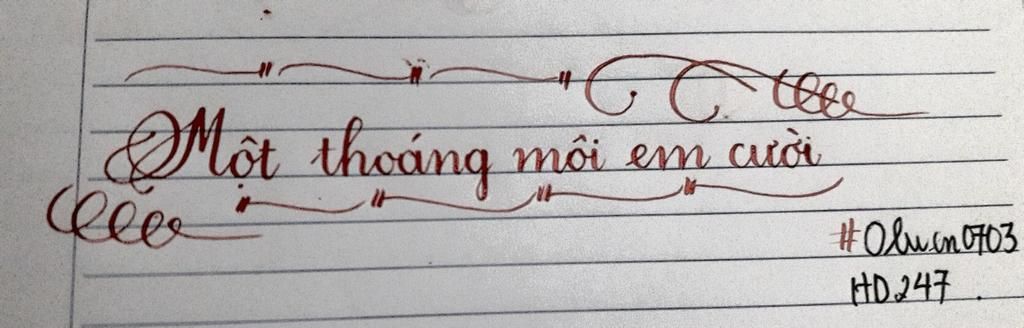 Một thoáng môi em cười
#Olucn0703
HD.247.